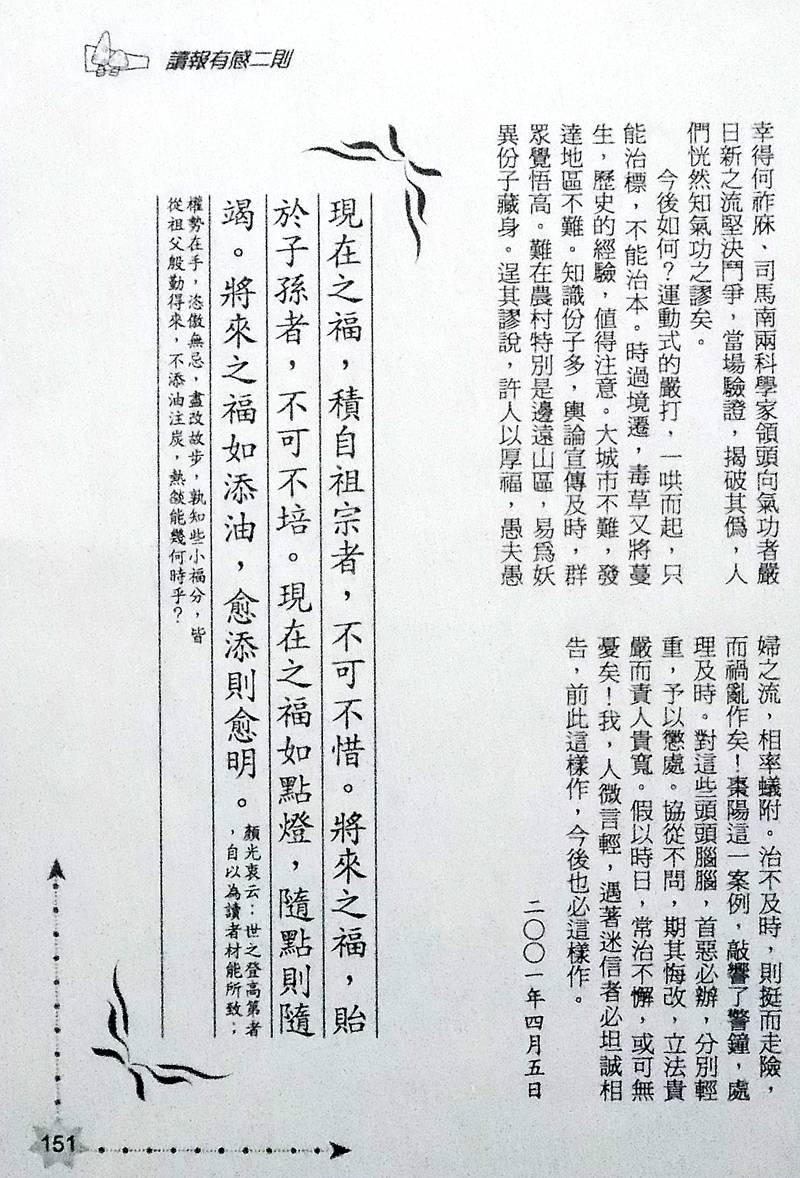 讀報有感二則
幸得何祚庥、司馬南兩科學家領頭向氣功者嚴
日新之流堅決鬥爭，當場驗證，揭破其僞，人
們恍然知氣功之謬矣。
今後如何？運動式的嚴打，一哄而起，只
能治標，不能治本。時過境遷，毒草又將蔓
生，歷史的經驗，值得注意。大城市不難，發
達地區不難。知識份子多，輿論宣傳及時，群
眾覺悟高。難在農村特別是邊遠山區，易爲妖
異份子藏身。逞其謬說，許人以厚福，愚夫愚
婦之流，相率蟻附。治不及時，則挺而走險，
而禍亂作矣！棗陽這一案例，敲響了警鐘，處
理及時。對這些頭頭腦腦，首惡必辦，分別輕
重，予以懲處。協從不問，期其悔改，立法貴
嚴而責人貴寬。假以時日，常治不懈，或可無
憂矣！我，人微言輕，遇著迷信者必坦誠相
告，前此這樣作，今後也必這樣作。
二〇〇一年四月五日
現在之福，積自祖宗者，不可不惜。將來之福，貽
於子孫者，不可不培。現在之福如點燈，隨點則隨
竭。將來之福如添油，愈添則愈明。
顏光衷云：世之登高第者
，自以為讀者材能所致；
權勢在手，恣傲無忌，盡改故步，孰知些小福分，皆
從祖父殷勤得來，不添油注炭，熱燄能幾何時乎？
151